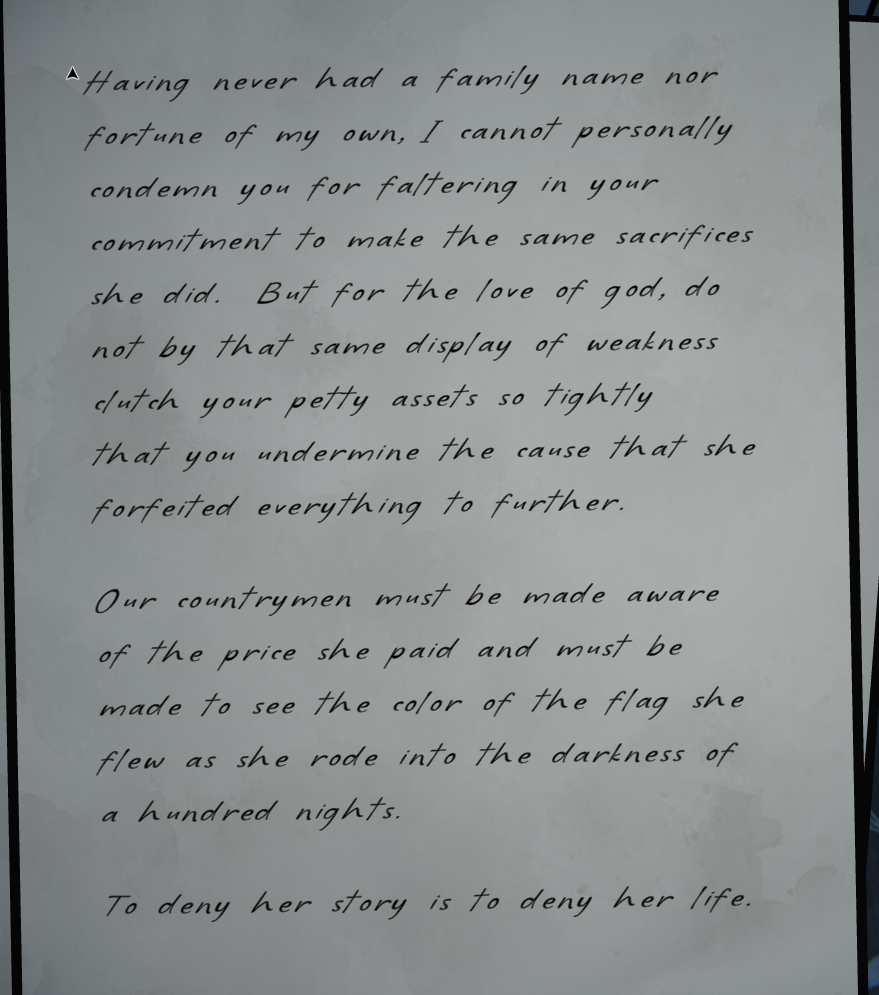 Having never had a family name nor
fortune of my own, I cannot personally
condemn you for faltering in your
commitment to make the same sacrifices
she did. But for the love of god, do
not by that same display of weakness
clutch your petty assets so tightly
that you undermine the cause that she
forfeited everything to further.
Our countrymen must be made aware
of the price she paid and must be
made to see the color of the flag she
flew as she rode into the darkness of
a hundred nights.
To deny her story is to deny her life.